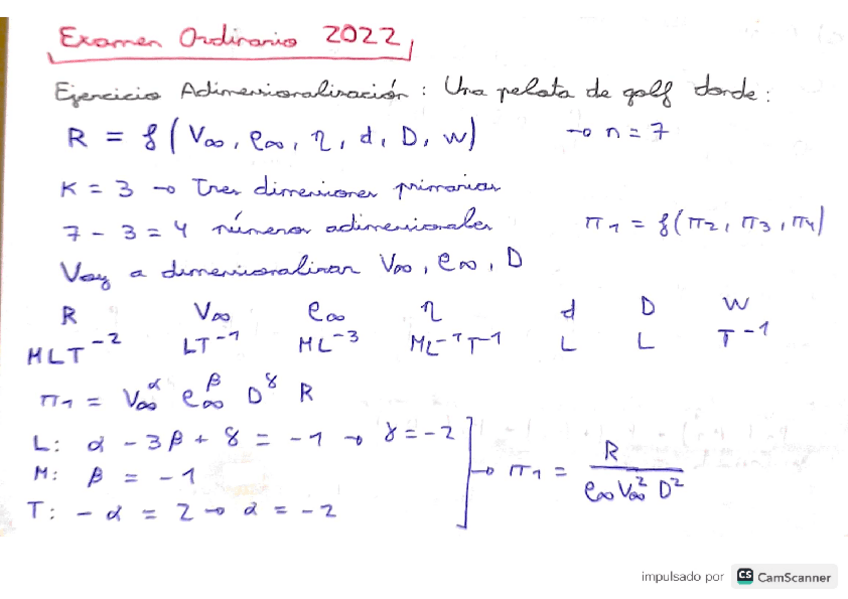 Examen Ordinario 2022
Ejercicio Adimensionalización: Una pelota de golf donde:
R = f(V∞, ρ∞, η, d, D, w) → n = 7
K = 3 → Tres dimensiones primarias
7 - 3 = 4 números adimensionales π1 = f(π2, π3, π4)
Voy a dimensionalizar V∞, ρ∞, D
R V∞ ρ∞ η d D w
MLT^-2 LT^-1 ML^-3 ML^-1T^-1 L L T^-1
π1 = V∞^α ρ∞^β D^γ R
L: α - 3β + γ = -1 → γ = -2
M: β = -1
T: -α = 2 → α = -2
→ π1 = R / (ρ∞ V∞^2 D^2)
impulsado por CS CamScanner